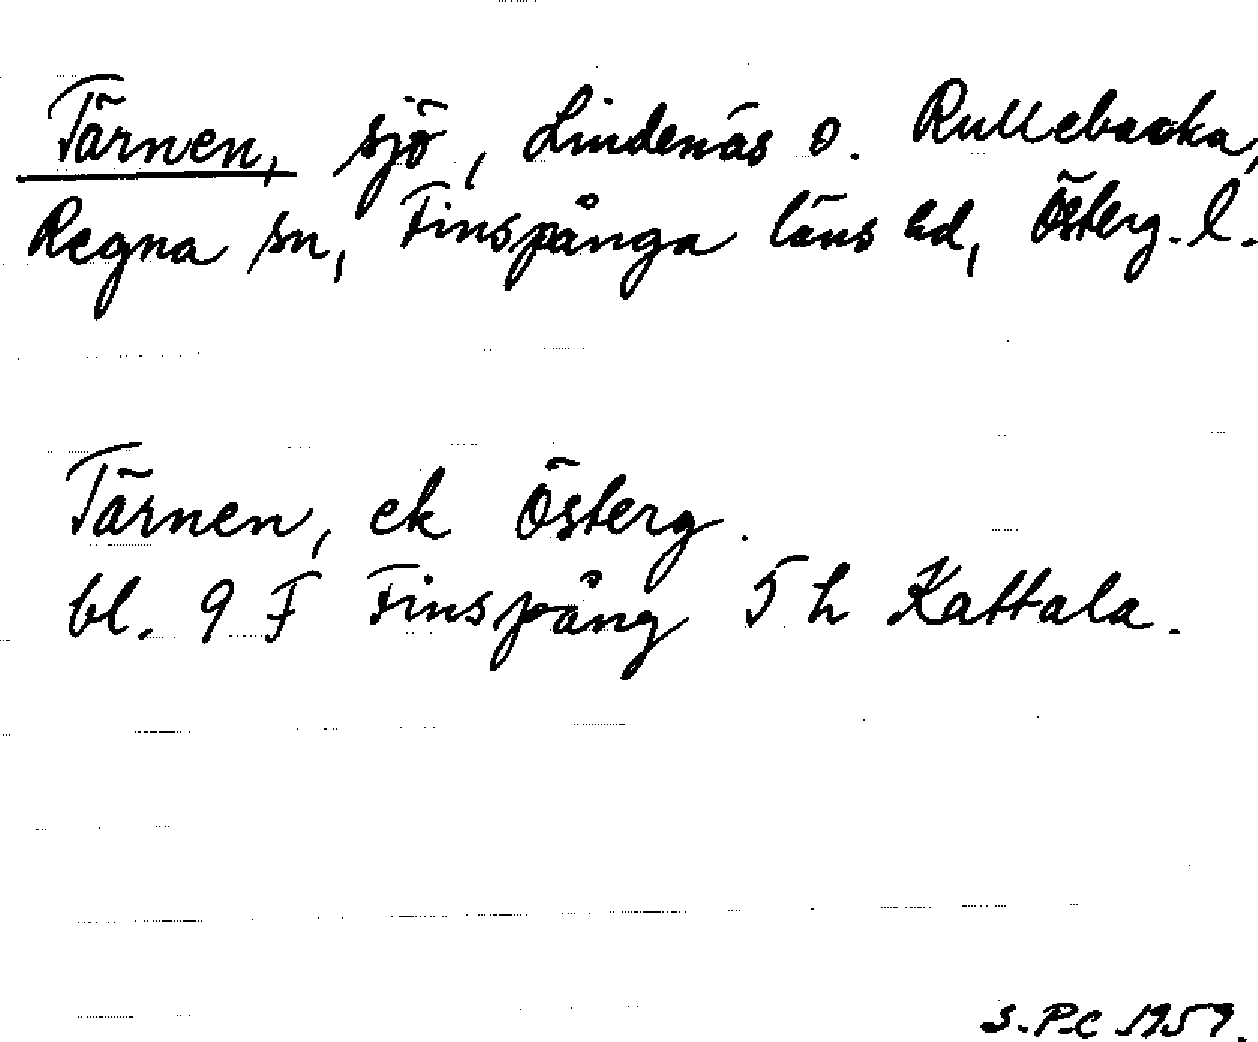 Tärnen, sjö, Lindenäs o. Rullebacka,
Regna sn, Finspånga läns hd, Österg. l.
Tärnen, ek Österg.
bl. 9 F Finspång 5 h Kattala.
S.P.C 1959.